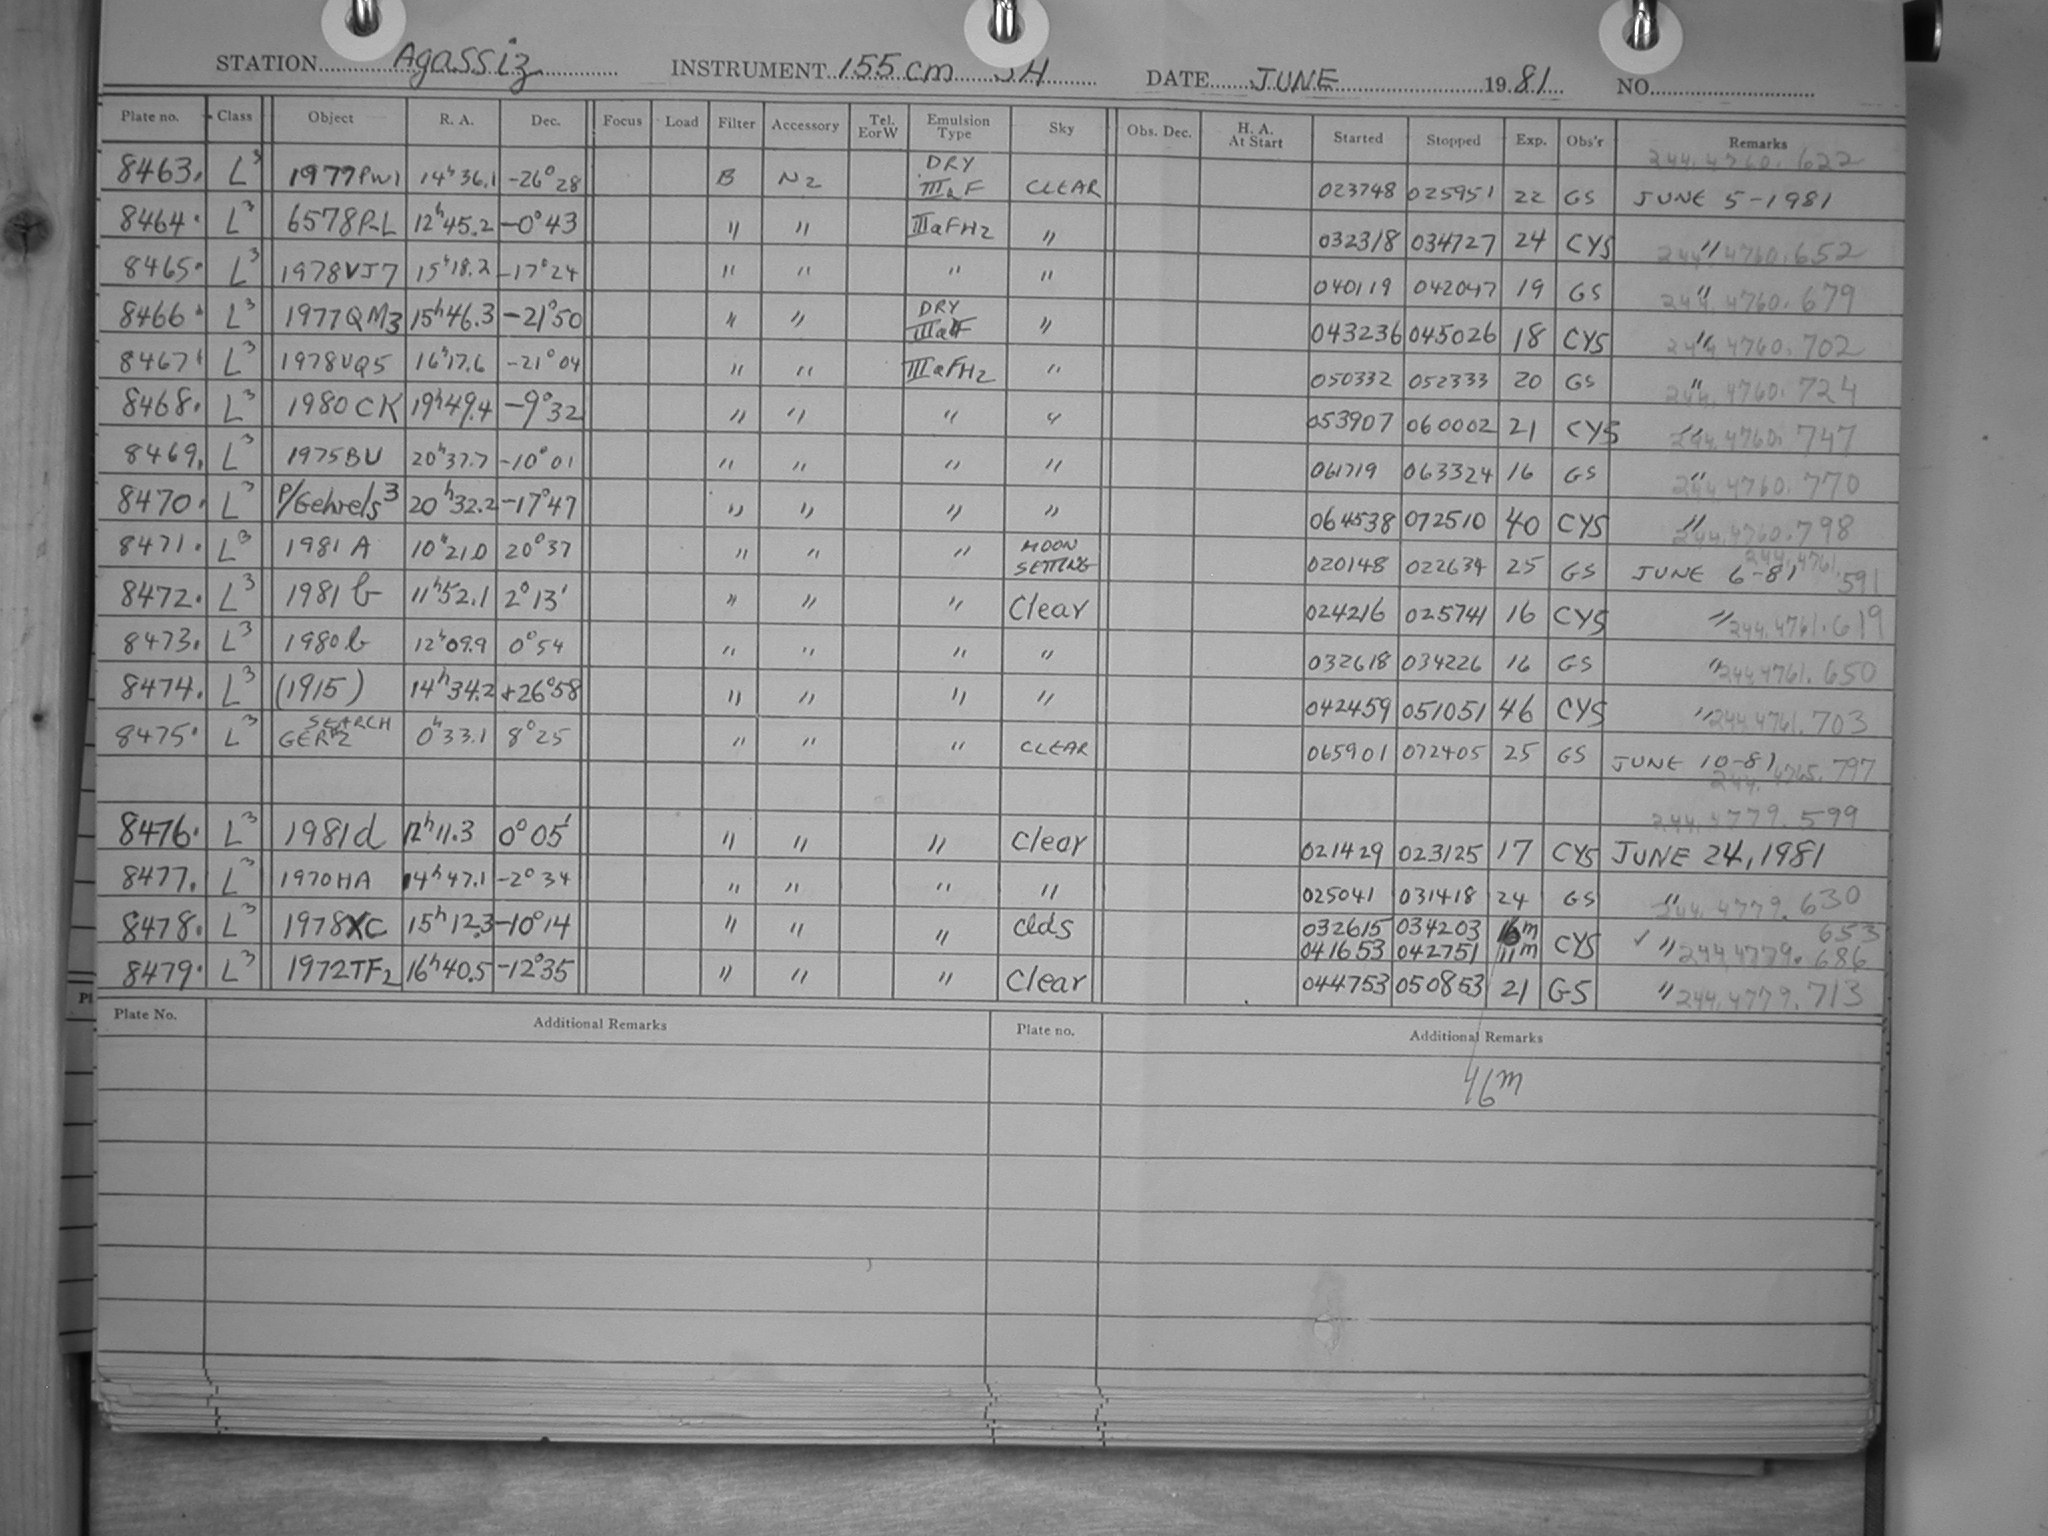 STATION Agassiz INSTRUMENT 155 cm DATE JUNE 1981 NO.
Plate no. Class Object R. A. Dec. Focus Load Filter Accessory Tel. EorW Emulsion Type Sky Obs. Dec. H. A. At Start Started Stopped Exp. Obs'r Remarks
244.4760.622
8463. L3 1977PW1 14h36.1 -26°28 B N2 DRY IIIaF CLEAR 023748 025951 22 GS JUNE 5-1981
8464. L3 6578P-L 12h45.2 -0°43 " " IIIaFH2 " 032318 034727 24 CYS " 244.4760.652
8465. L3 1978VJ7 15h18.2 -17°24 " " " " 040119 042047 19 GS " 244.4760.679
8466. L3 1977QM3 15h46.3 -21°50 " " DRY IIIaF " 043236 045026 18 CYS " 244.4760.702
8467. L3 1978VQ5 16h17.6 -21°04 " " IIIaFH2 " 050332 052333 20 GS " 244.4760.724
8468. L3 1980CK 19h49.4 -9°32 " " " " 053907 060002 21 CYS " 244.4760.747
8469. L3 1975BU 20h37.7 -10°01 " " " " 061719 063324 16 GS " 244.4760.770
8470. L3 P/Gehrels3 20h32.2 -17°47 " " " " 064538 072510 40 CYS " 244.4760.798
8471. L3 1981A 10h21.0 20°37 " " " MOON SETTING 020148 022634 25 GS JUNE 6-81 244.4761.591
8472. L3 1981b 11h52.1 2°13' " " " Clear 024216 025741 16 CYS " 244.4761.619
8473. L3 1980b 12h09.9 0°54 " " " " 032618 034226 16 GS " 244.4761.650
8474. L3 (1915) 14h34.2 +26°58 " " " " 042459 051051 46 CYS " 244.4761.703
8475. L3 SEARCH 0h33.1 8°25 " " " CLEAR 065901 072405 25 GS JUNE 10-81 244.4765.797
244.4779.599
8476. L3 1981d 12h11.3 0°05' " " " Clear 021429 023125 17 CYS JUNE 24, 1981
8477. L3 1970HA 14h47.1 -2°34 " " " " 025041 031418 24 GS " 244.4779.630
8478. L3 1978XC 15h12.3 -10°14 " " " clds 032615 034203 16m 653
041653 042751 11m CYS ✓ " 244.4779.686
8479. L3 1972TF2 16h40.5 -12°35 " " " Clear 044753 050853 21 GS " 244.4779.713
Plate No. Additional Remarks Plate no. Additional Remarks
16m